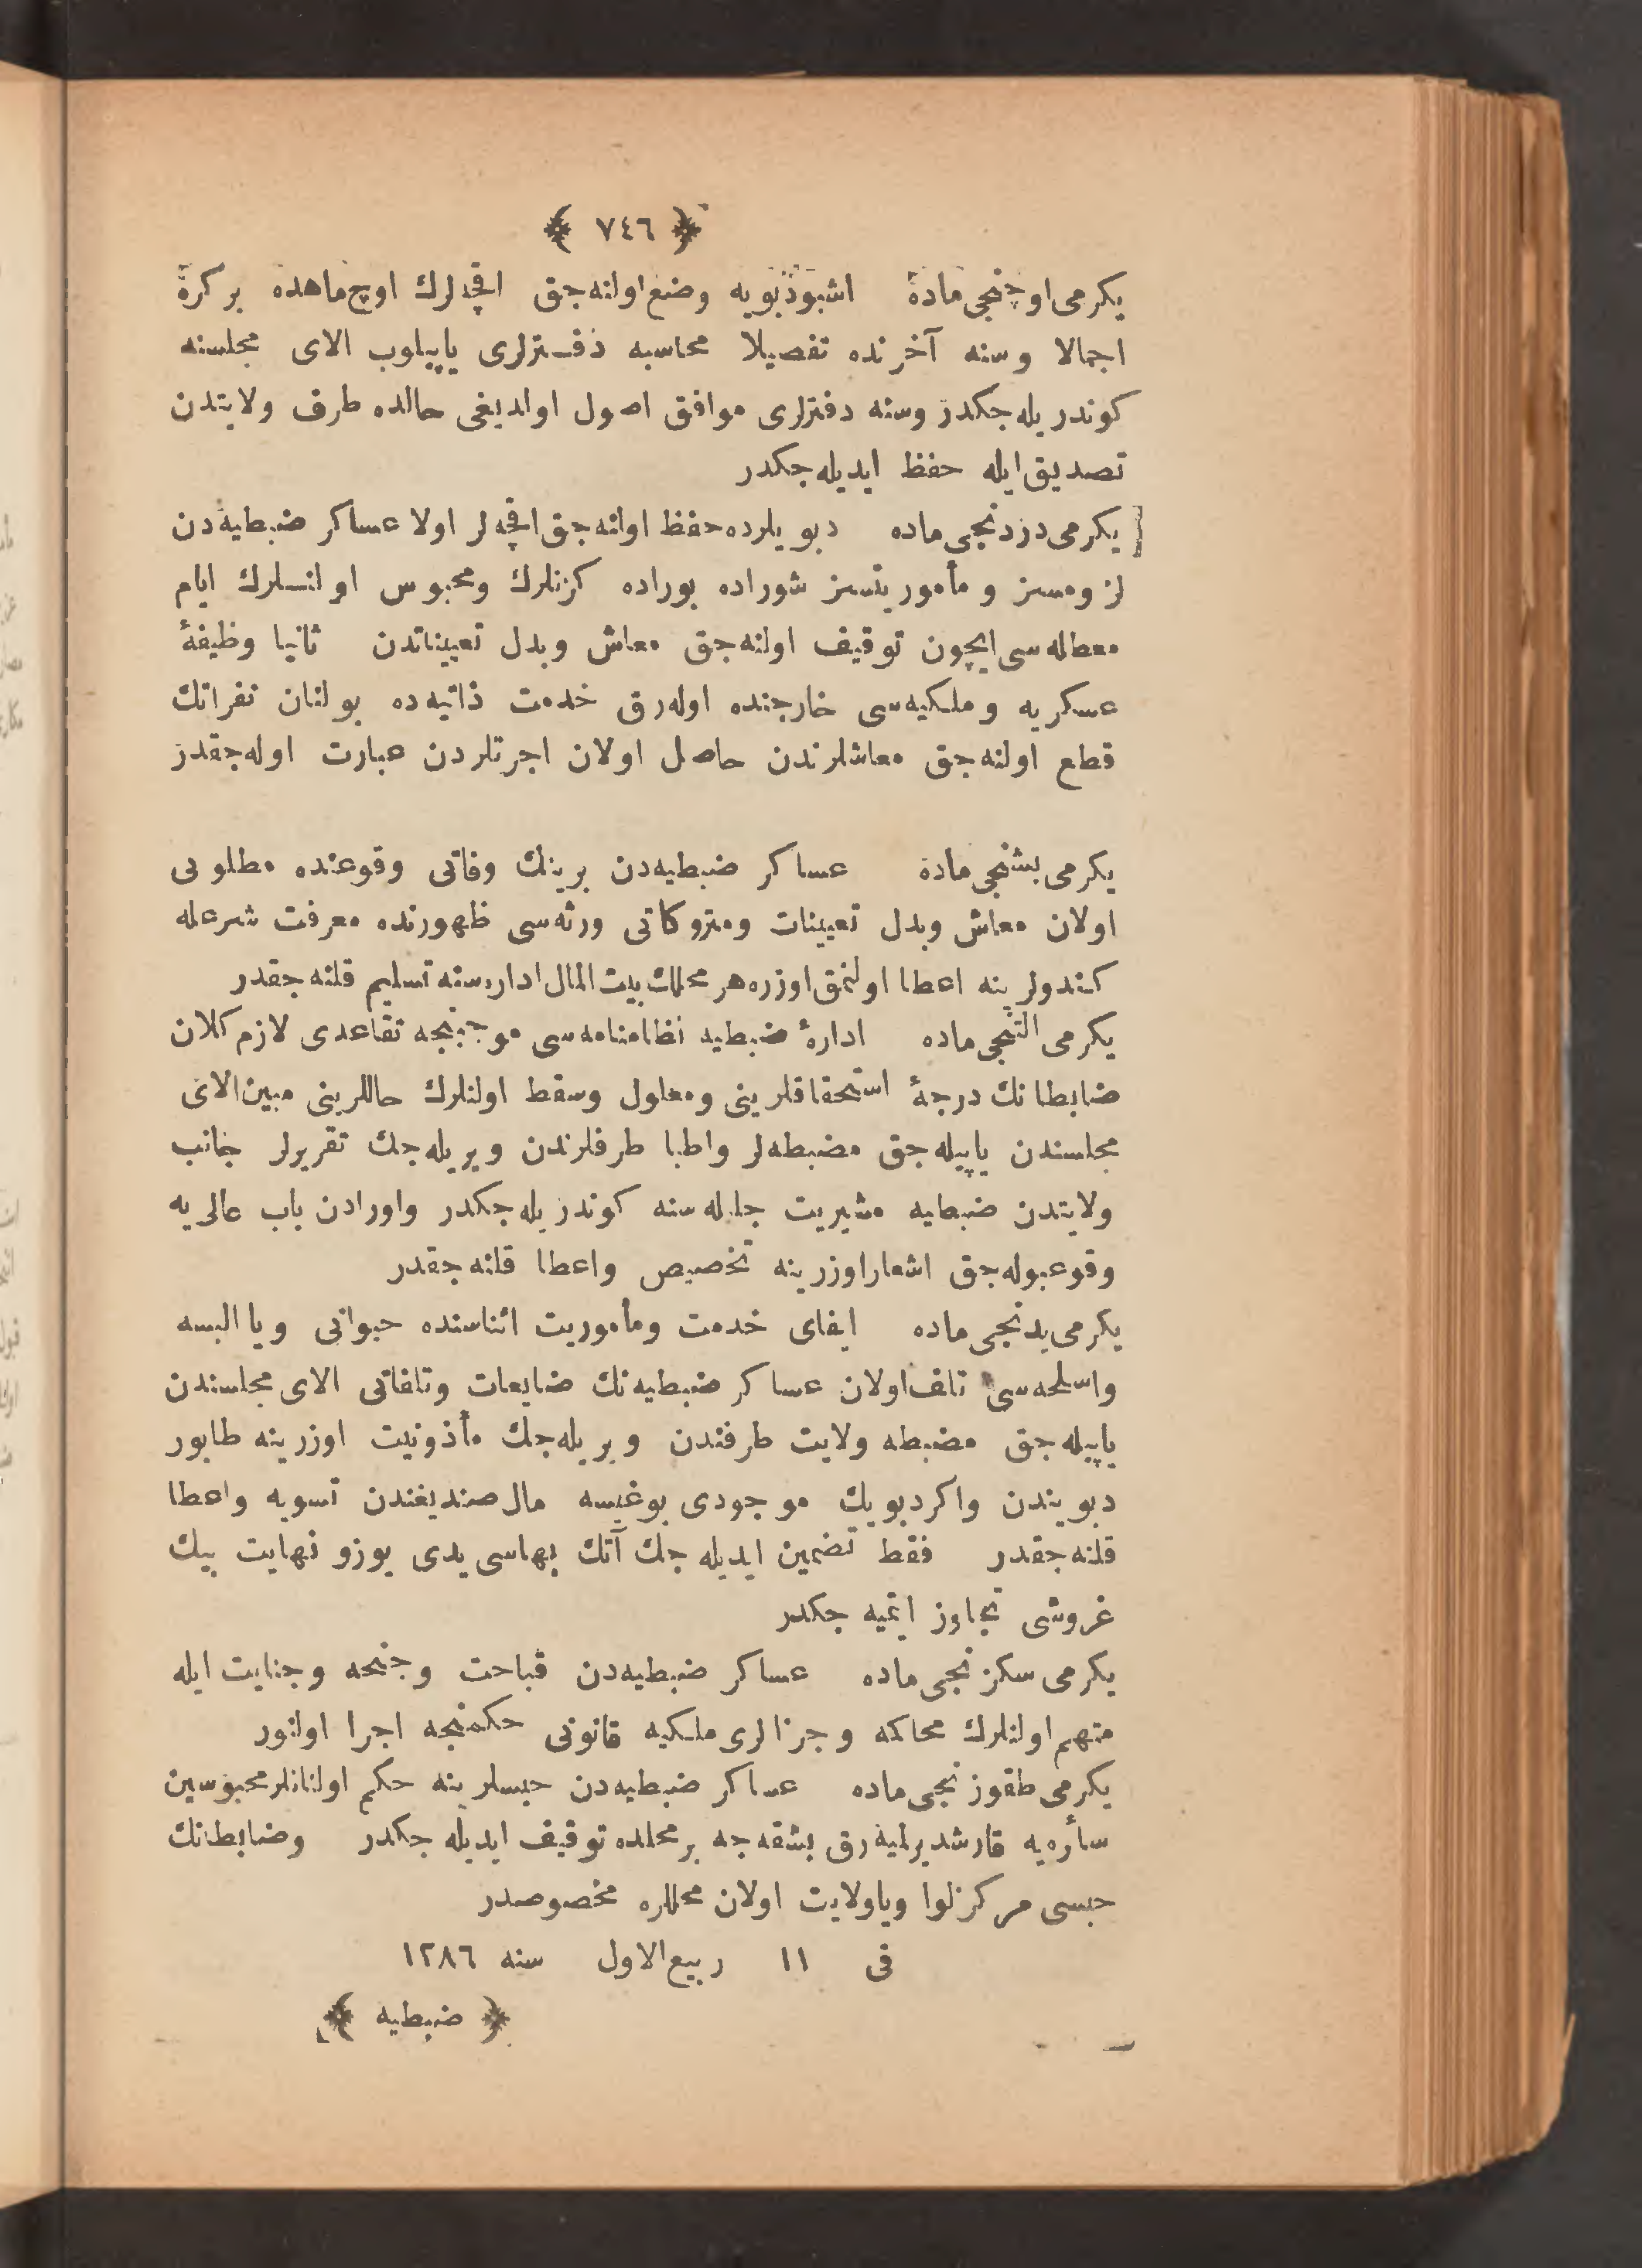 ﴿ ٧٤٦ ﴾
یكرمی اوچنجی ماده اشبو دبویه وضع اولنه‌جق اقچه‌لرك اوچ ماهده بر كره
اجمالا و سنه آخرنده تفصیلا محاسبه دفترلری یاپیلوب الای مجلسنه
كوندریله‌جكدر وسنه دفترلری موافق اصول اولدیغی حالده طرف ولایتدن
تصدیق ایله حفظ ایدیله‌جكدر
یكرمی دردنجی ماده دبویلرده حفظ اولنه‌جق اقچه‌لر اولا عساكر ضبطیه‌دن
لزومسز و مأموریتسز شوراده بوراده كزنلرك ومحبوس اولنسلرك ایام
معطله‌سی ایچون توقیف اولنه‌جق معاش وبدل تعییناتدن ثانیا وظیفهٔ
عسكریه و ملكیه‌سی خارجنده اوله‌رق خدمت ذاتیه‌ده بولنان نفراتك
قطع اولنه‌جق معاشلرندن حاصل اولان اجرتلردن عبارت اوله‌جقدر
یكرمی بشنجی ماده عساكر ضبطیه‌دن برینك وفاتی وقوعنده مطلوبی
اولان معاش وبدل تعیینات ومتروكاتی ورثه‌سی ظهورنده معرفت شرعله
كندولرینه اعطا اولنمق اوزره هر محلك بیت المال اداره‌سنه تسلیم قلنه‌جقدر
یكرمی التنجی ماده ادارهٔ ضبطیه نظامنامه‌سی موجبنجه تقاعدی لازم كلان
ضابطانك درجهٔ استحقاقلرینی ومعلول وسقط اولنلرك حاللرینی مبین الای
مجلسندن یاپیله‌جق مضبطه‌لر واطبا طرفلرندن ویریله‌جك تقریرلر جانب
ولایتدن ضبطیه مشیریت جلیله‌سنه كوندریله‌جكدر واورادن باب عالی‌یه
وقوعبوله‌جق اشعار اوزرینه تخصیص واعطا قلنه‌جقدر
یكرمی یدنجی ماده ایفای خدمت ومأموریت اثناسنده حیوانی ویا البسه
واسلحه‌سی تلف اولان عساكر ضبطیه‌نك ضایعات وتلفاتی الای مجلسندن
یاپیله‌جق مضبطه ولایت طرفندن ویریله‌جك مأذونیت اوزرینه طابور
دبویندن واكر دبویك موجودی یوغیسه مال صندیغندن تسویه واعطا
قلنه‌جقدر فقط تضمین ایدیله‌جك آتك بهاسی یدی یوز و نهایت بیك
غروشی تجاوز ایتمیه‌جكدر
یكرمی سكزنجی ماده عساكر ضبطیه‌دن قباحت وجنحه وجنایت ایله
متهم اولنلرك محاكمه و جزالری ملكیه قانونی حكمنجه اجرا اولنور
یكرمی طقوزنجی ماده عساكر ضبطیه‌دن حبسلرینه حكم اولنانلر محبوسین
سائره‌یه قارشدیرلمیه‌رق بشقه‌جه بر محلده توقیف ایدیله‌جكدر وضابطانك
حبسی مركز لوا ویا ولایت اولان محللره مخصوصدر
فی ١١ ربیع الاول سنه ١٢٨٦
﴿ ضبطیه ﴾